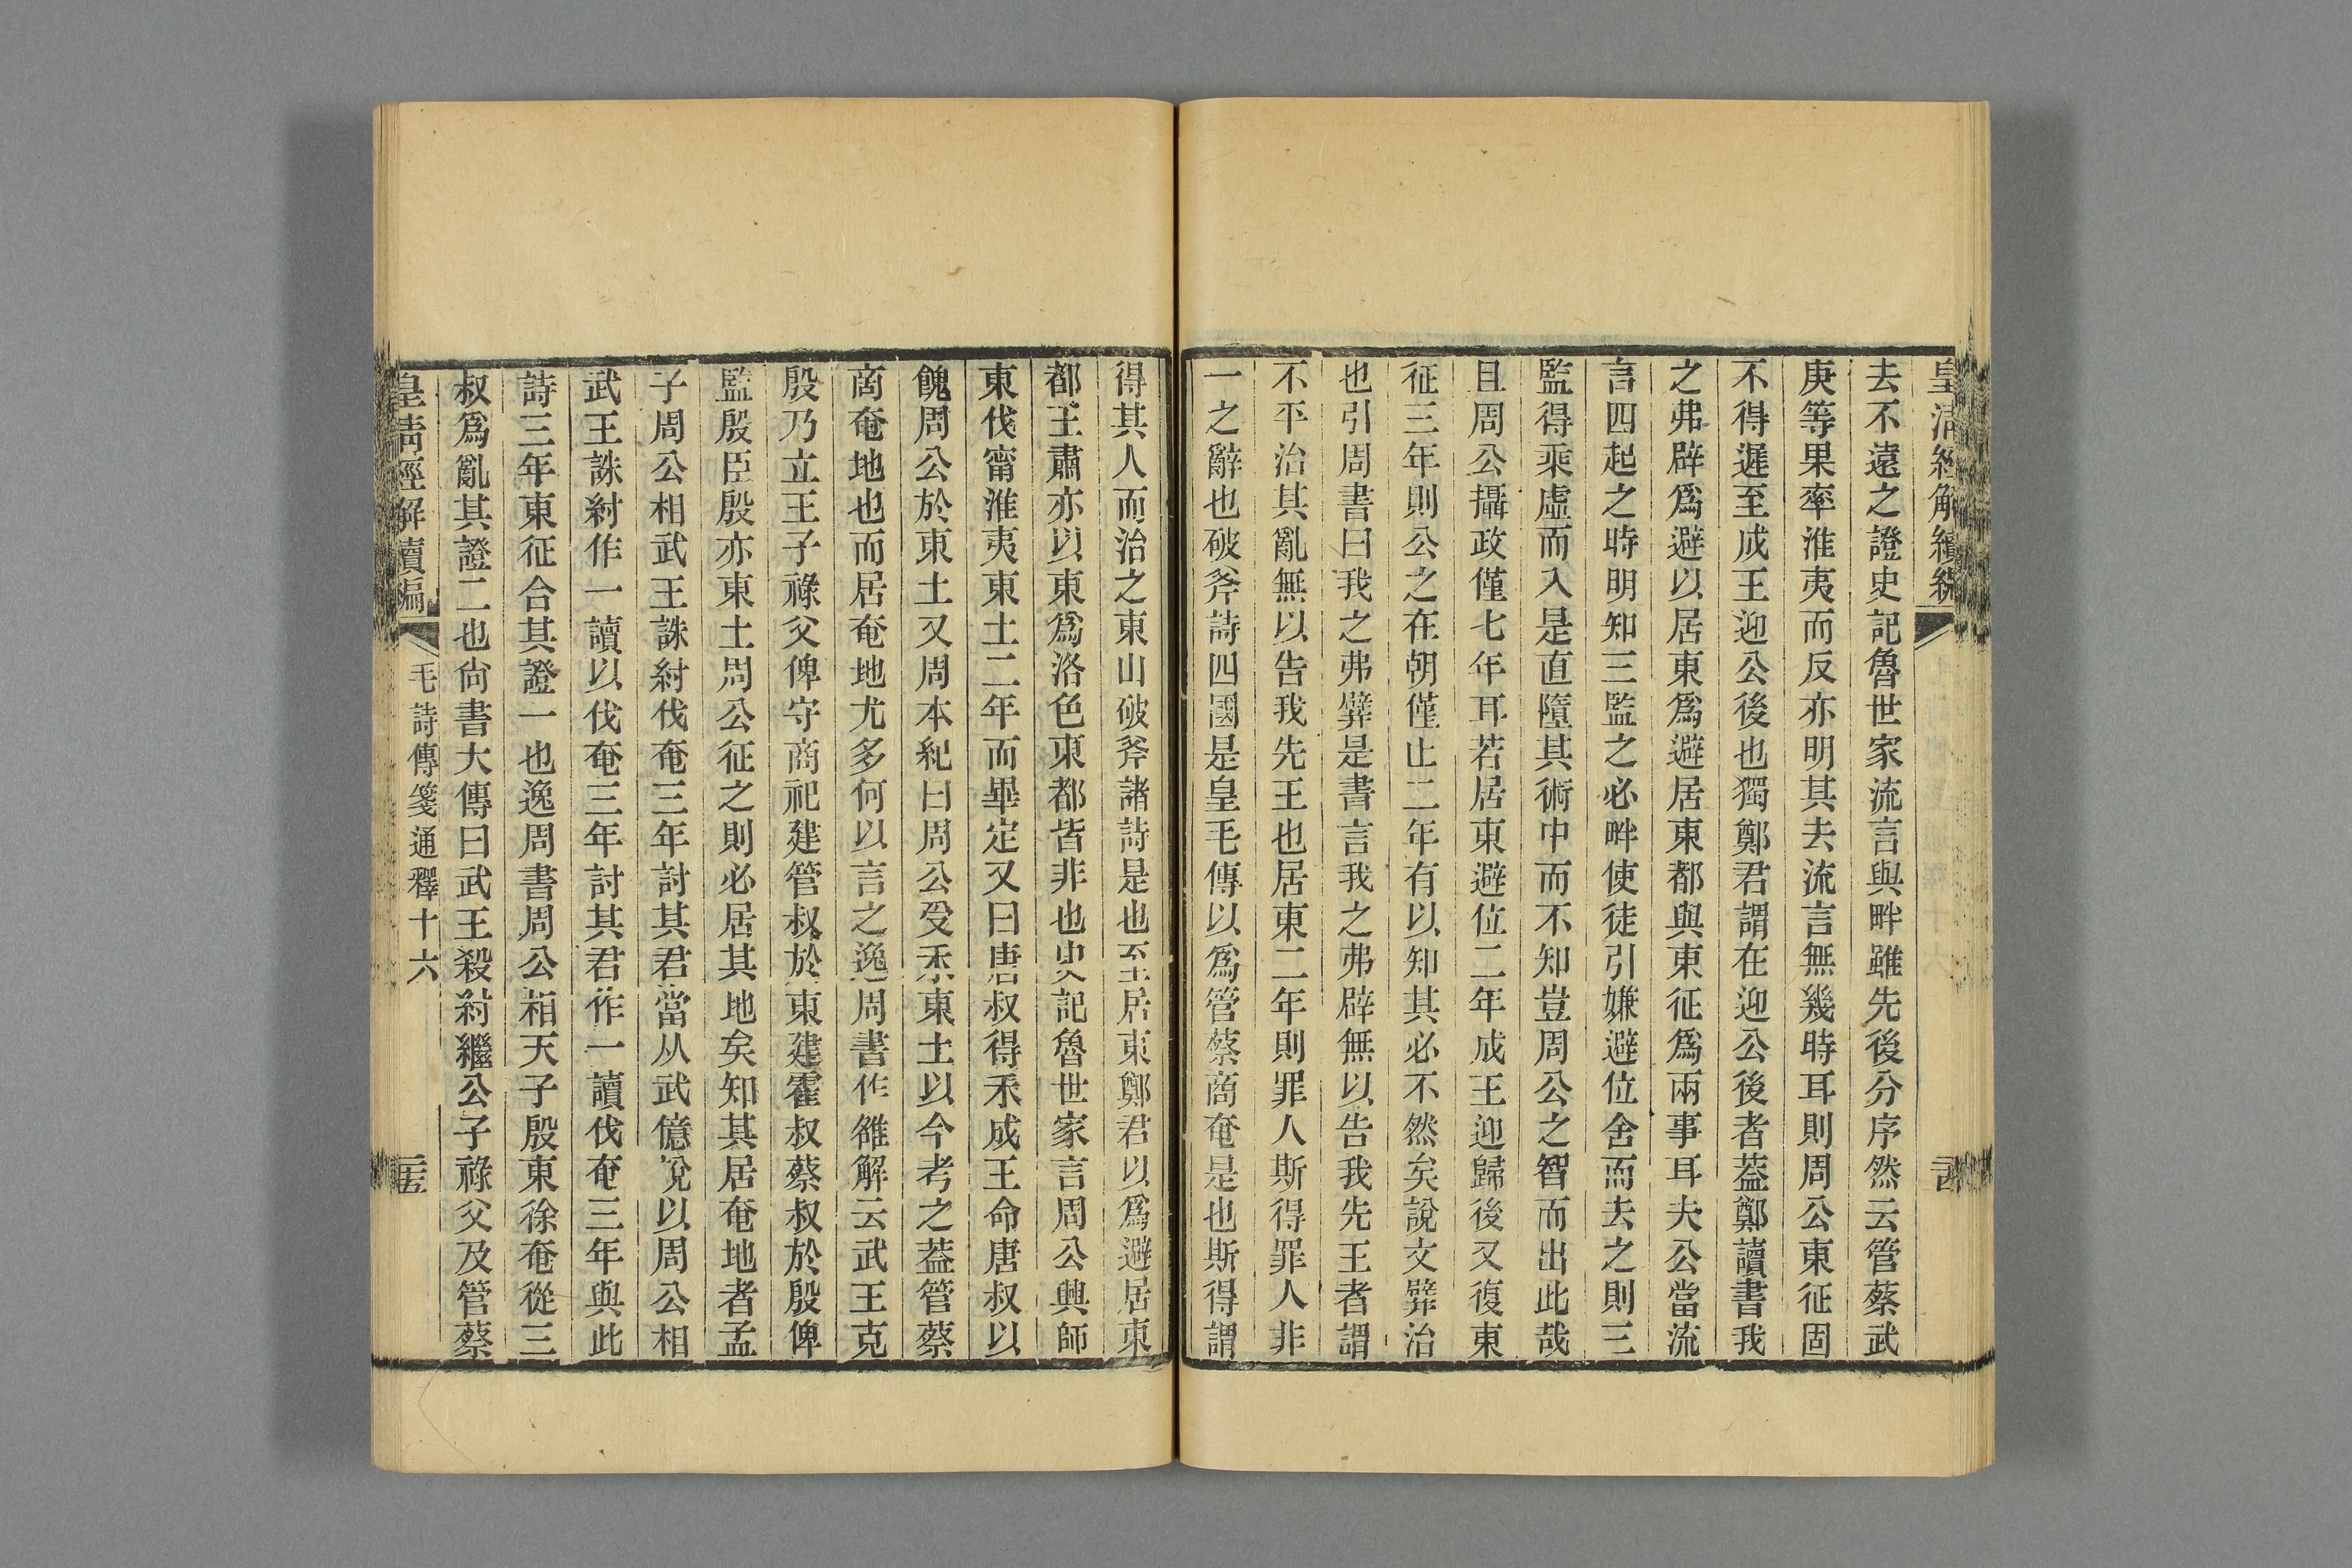 皇清經解續編
去不遠之證史記魯世家流言與畔雖先後分序然云管蔡武
庚等果率淮夷而反亦明其去流言無幾時耳則周公東征固
不得遲至成王迎公後也獨鄭君謂在迎公後者蓋鄭讀書我
之弗辟爲避以居東爲避居東都與東征爲兩事耳夫公當流
言四起之時明知三監之必畔使徒引嫌避位舍而去之則三
監得乘虛而入是直墮其術中而不知豈周公之智而出此哉
且周公攝政僅七年耳若居東避位二年成王迎歸後又復東
征三年則公之在朝僅止二年有以知其必不然矣說文㢸治
也引周書曰我之弗㢸是書言我之弗辟無以告我先王者謂
不平治其亂無以告我先王也居東二年則罪人斯得罪人非
一之辭也破斧詩四國是皇毛傳以爲管蔡商奄是也斯得謂
得其人而治之東山破斧諸詩是也至居東鄭君以爲避居東
都王肅亦以東爲洛邑東都皆非也史記魯世家言周公興師
東伐甯淮夷東土二年而畢定又曰唐叔得禾成王命唐叔以
餽周公於東土又周本紀曰周公受禾東土以今考之蓋管蔡
商奄地也而居奄地尤多何以言之逸周書作雒解云武王克
殷乃立王子祿父俾守商祀建管叔於東建霍叔蔡叔於殷俾
監殷臣殷亦東土周公征之則必居其地矣知其居奄地者孟
子周公相武王誅紂伐奄三年討其君當从武億說以周公相
武王誅紂作一讀以伐奄三年討其君作一讀伐奄三年與此
詩三年東征合其證一也逸周書周公相天子殷東徐奄從三
叔爲亂其證二也尙書大傳曰武王殺紂繼公子祿父及管蔡
皇清經解續編
毛詩傳箋通釋十六